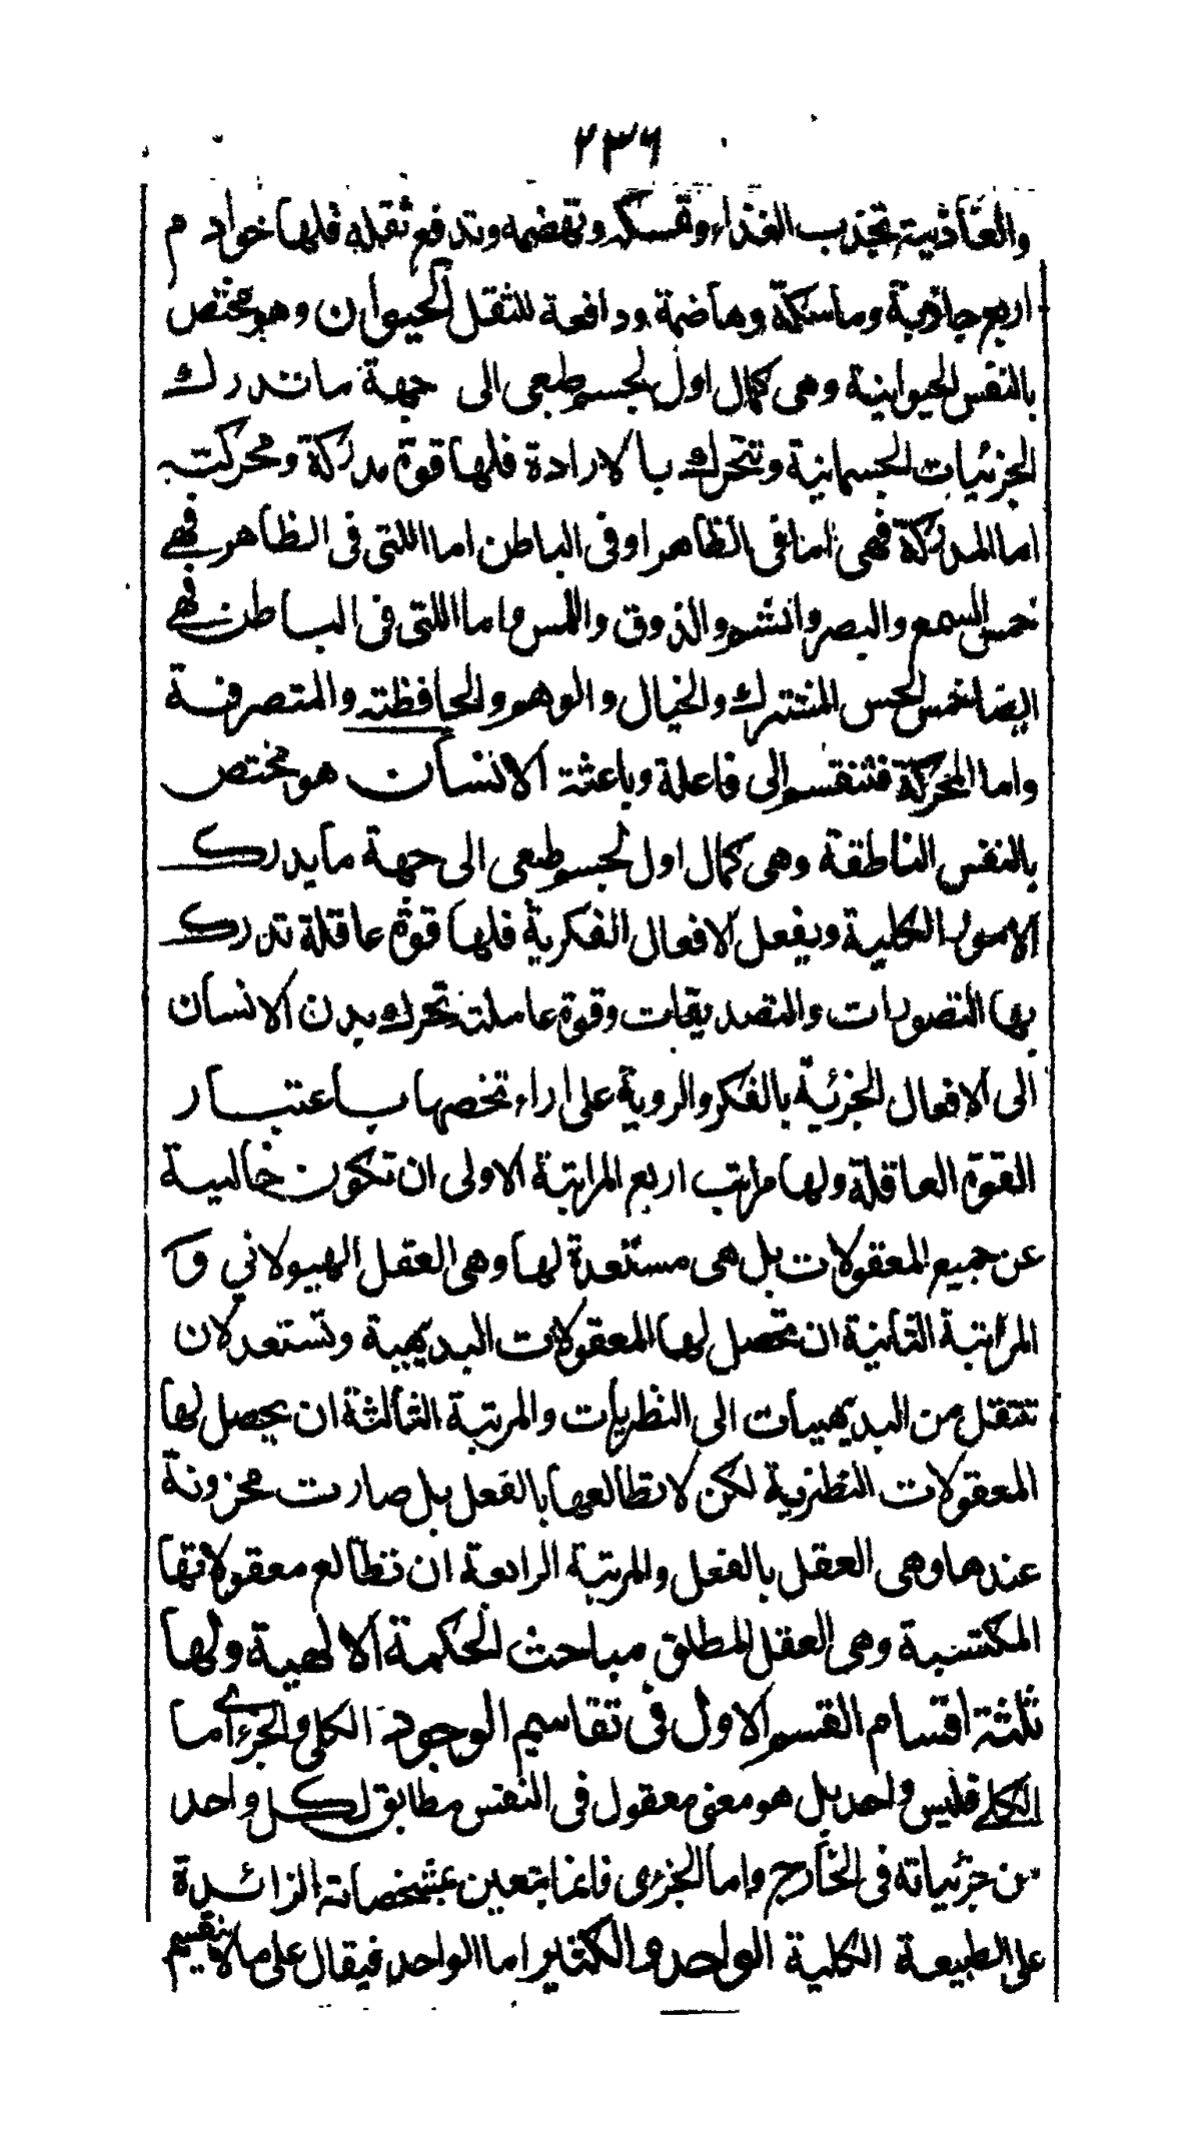 ٢٣٦
والغاذية تجذب الغذاء وتمسكه وتهضمه وتدفع ثقله فلها خوادم
اربع جاذبة وماسكة وهاضمة ودافعة للثقل الحيوان وهو مختص
بالنفس الحيوانية وهى كمال اول لجسم طبعى الى جهة ما تدرك
الجزئيات الجسمانية وتتحرك بالارادة فلها قوة مدركة ومحركة
اما المدركة فهى اما فى الظاهر او فى الباطن اما اللتى فى الظاهر فهى
خمس السمع والبصر والشم والذوق واللمس واما اللتى فى الباطن فهى
ايضا خمس الحس المشترك والخيال والوهم والحافظة والمتصرفة
واما المحركة فتنقسم الى فاعلة وباعثة الانسان هو مختص
بالنفس الناطقة وهى كمال اول لجسم طبعى الى جهة ما يدرك
الامور الكلية ويفعل الافعال الفكرية فلها قوة عاقلة تدرك
بها التصورات والتصديقات وقوة عاملة تحرك بدن الانسان
الى الافعال الجزئية بالفكر والروية على اراء تخصها باعتبار
القوة العاقلة ولها مراتب اربع المراتبة الاولى ان تكون خالية
عن جميع المعقولات بل هى مستعدة لها وهى العقل الهيولاني و
المراتبة الثانية ان تحصل لها المعقولات البديهية وتستعد لان
تنتقل من البديهيات الى النظريات والمرتبة الثالثة ان يحصل لها
المعقولات النظرية لكن لا تطالعها بالفعل بل صارت مخزونة
عندها وهى العقل بالفعل والمرتبة الرابعة ان تطالع معقولاتها
المكتسبة وهى العقل المطلق مباحث الحكمة الالهية ولها
ثلثة اقسام القسم الاول فى تقاسيم الوجود الكلى والجزءى اما
الكلى فليس واحد بل هو معنى معقول فى النفس مطابق لكل واحد
من جزئياته فى الخارج واما الجزى فانما يتعين بمشخصاته الزائدة
على الطبيعة الكلية الواحد والكثير اما الواحد فيقال على ما لا ينقسم